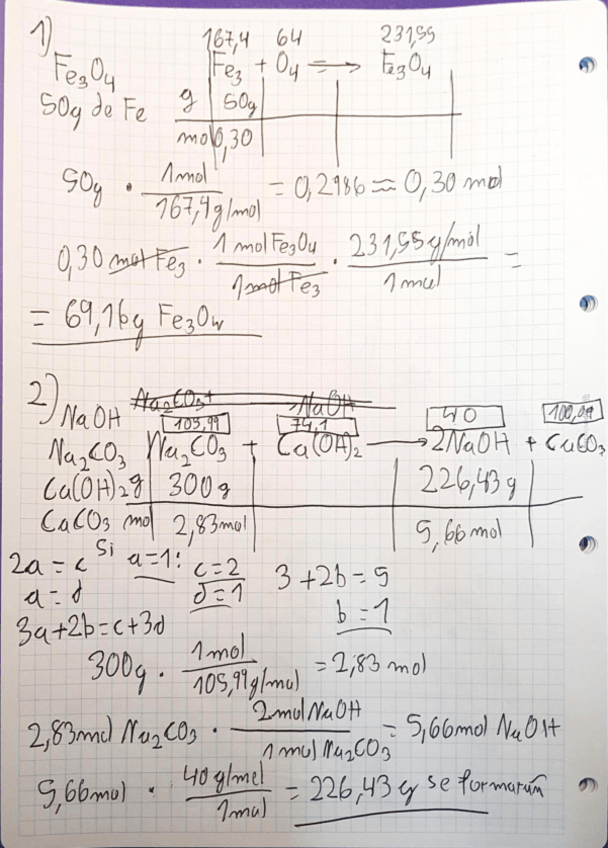 1)
167,4 64 231,55
Fe₃O₄ Fe₃ + O₄ ⟹ Fe₃O₄
50g de Fe g 50g
mol 0,30
50g · 1mol / 167,4g/mol = 0,2986 ≈ 0,30 mol
0,30 mol Fe₃ · 1 mol Fe₃O₄ / 1mol Fe₃ · 231,55 g/mol / 1 mol =
= 69,16g Fe₃O₄
2) Na₂CO₃ + NaOH
NaOH 105,99 74,1 40 100,09
Na₂CO₃ Na₂CO₃ + Ca(OH)₂ → 2NaOH + CaCO₃
Ca(OH)₂ g 300g 226,43 g
CaCO₃ mol 2,83mol 5,66 mol
2a = c Si a=1: c=2 3 + 2b = 5
a = d d=1 b = 1
3a+2b=c+3d
300g · 1mol / 105,99g/mol = 2,83 mol
2,83mol Na₂CO₃ · 2mol NaOH / 1 mol Na₂CO₃ = 5,66mol NaOH
5,66mol · 40 g/mol / 1mol = 226,43 g se formarán